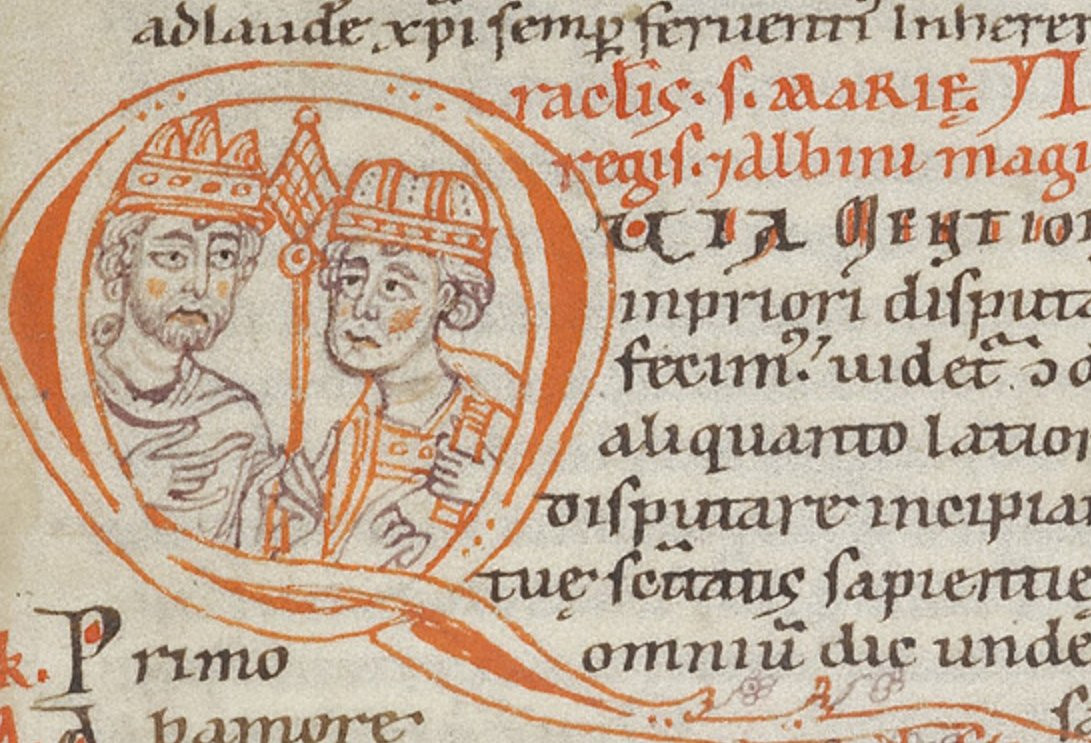 adlaude xp̄i semꝑ feruenti Inherer
raclis. s. MARIĘ.
regis. ⁊ Albini magi
QUIA MENTIO
inpriori disputa
fecim᷒. uidet̄ ɔ
aliquanto latior
disputare incipia
tuę sc̄itatis sapientię
omniū dic unde
k. Primo
bamore